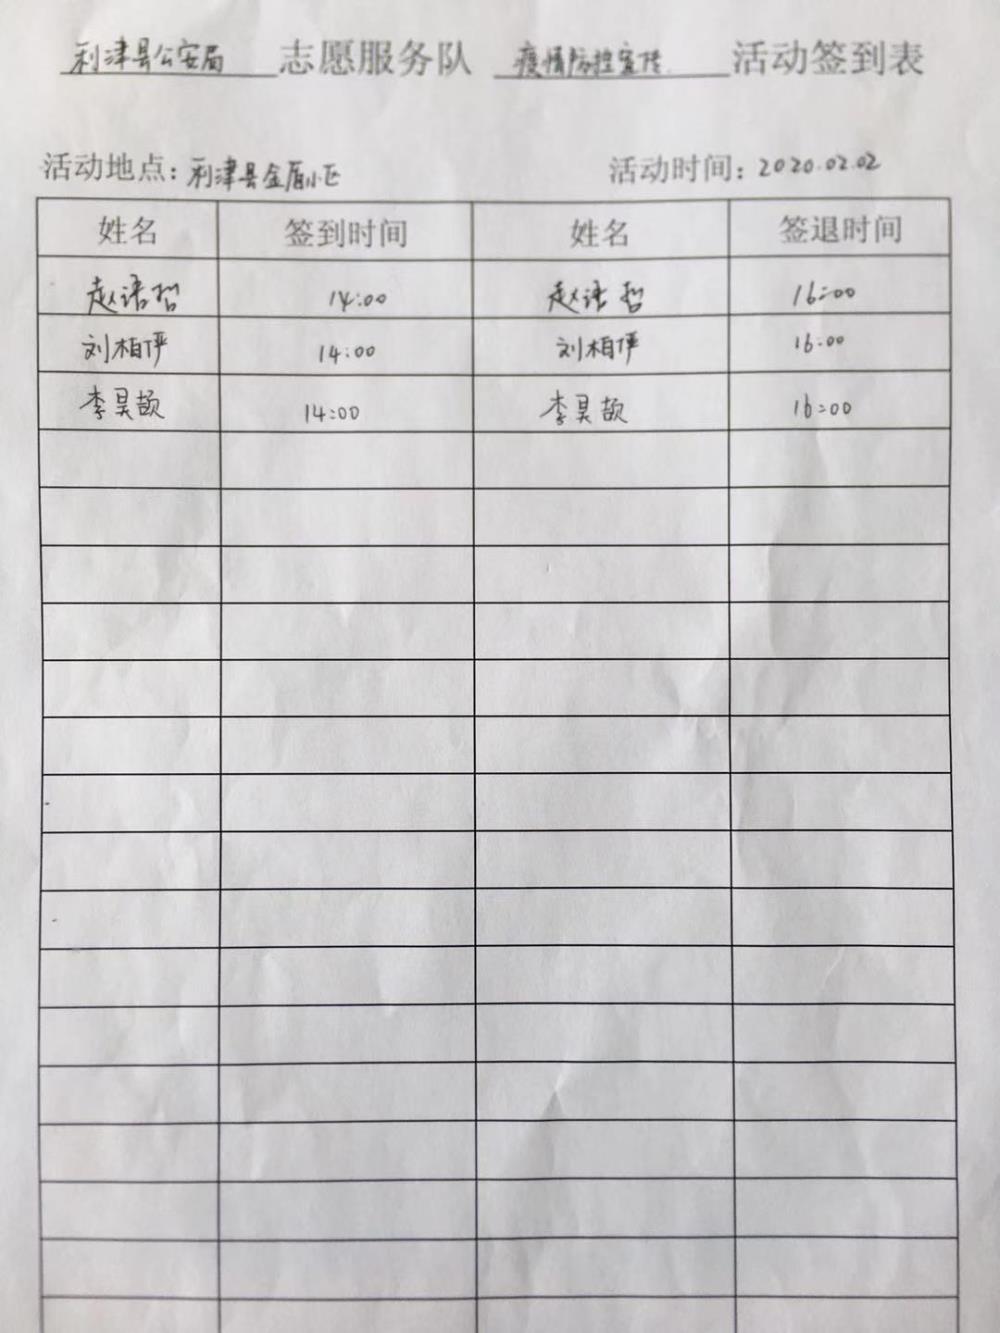 利津县公安局 志愿服务队 疫情防控宣传 活动签到表
活动地点：利津县金盾小区 活动时间：2020.02.02
姓名 签到时间 姓名 签退时间
赵语哲 14:00 赵语哲 16:00
刘相俨 14:00 刘相俨 16:00
李昊颉 14:00 李昊颉 16:00